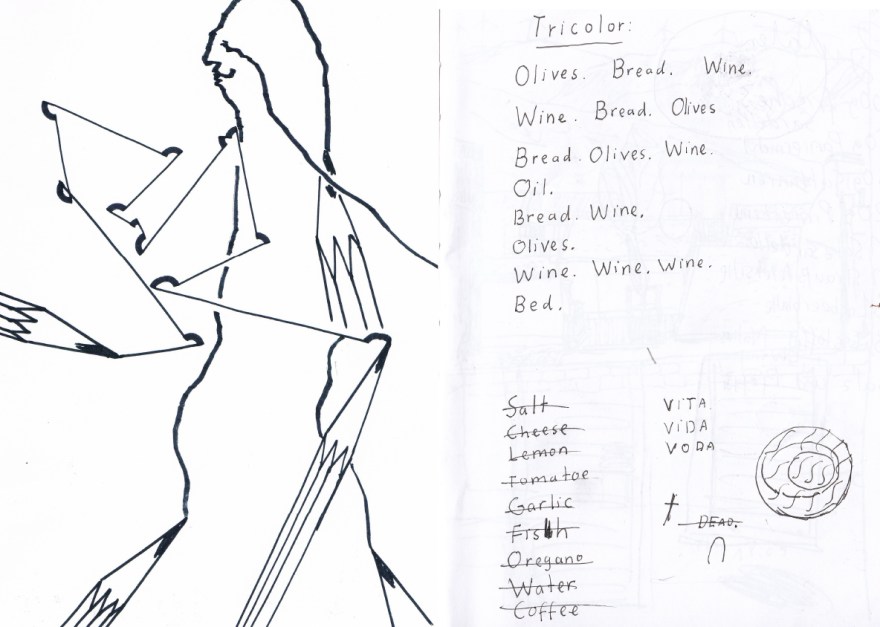 Tricolor:
Olives. Bread. Wine.
Wine. Bread. Olives
Bread. Olives. Wine.
Oil.
Bread. Wine.
Olives.
Wine. Wine. Wine.
Bed.
Salt
Cheese
Lemon
Tomatoe
Garlic
Fish
Oregano
Water
Coffee
VITA
VIDA
VODA
DEAD.